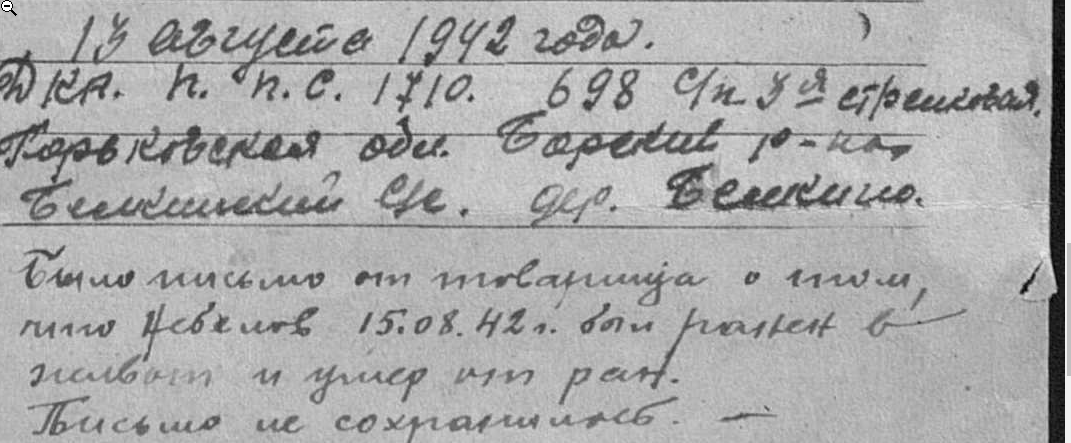 13 августа 1942 года.
ДКА. п. п. с. 1710. 698 с/п. 3я стрелковая.
Горьковская обл. Борский р-на,
с/с. дер.
Было письмо от товарища о том,
что 15.08.42 г. был ранен в
живот и умер от ран.
Письмо не сохранилось. —